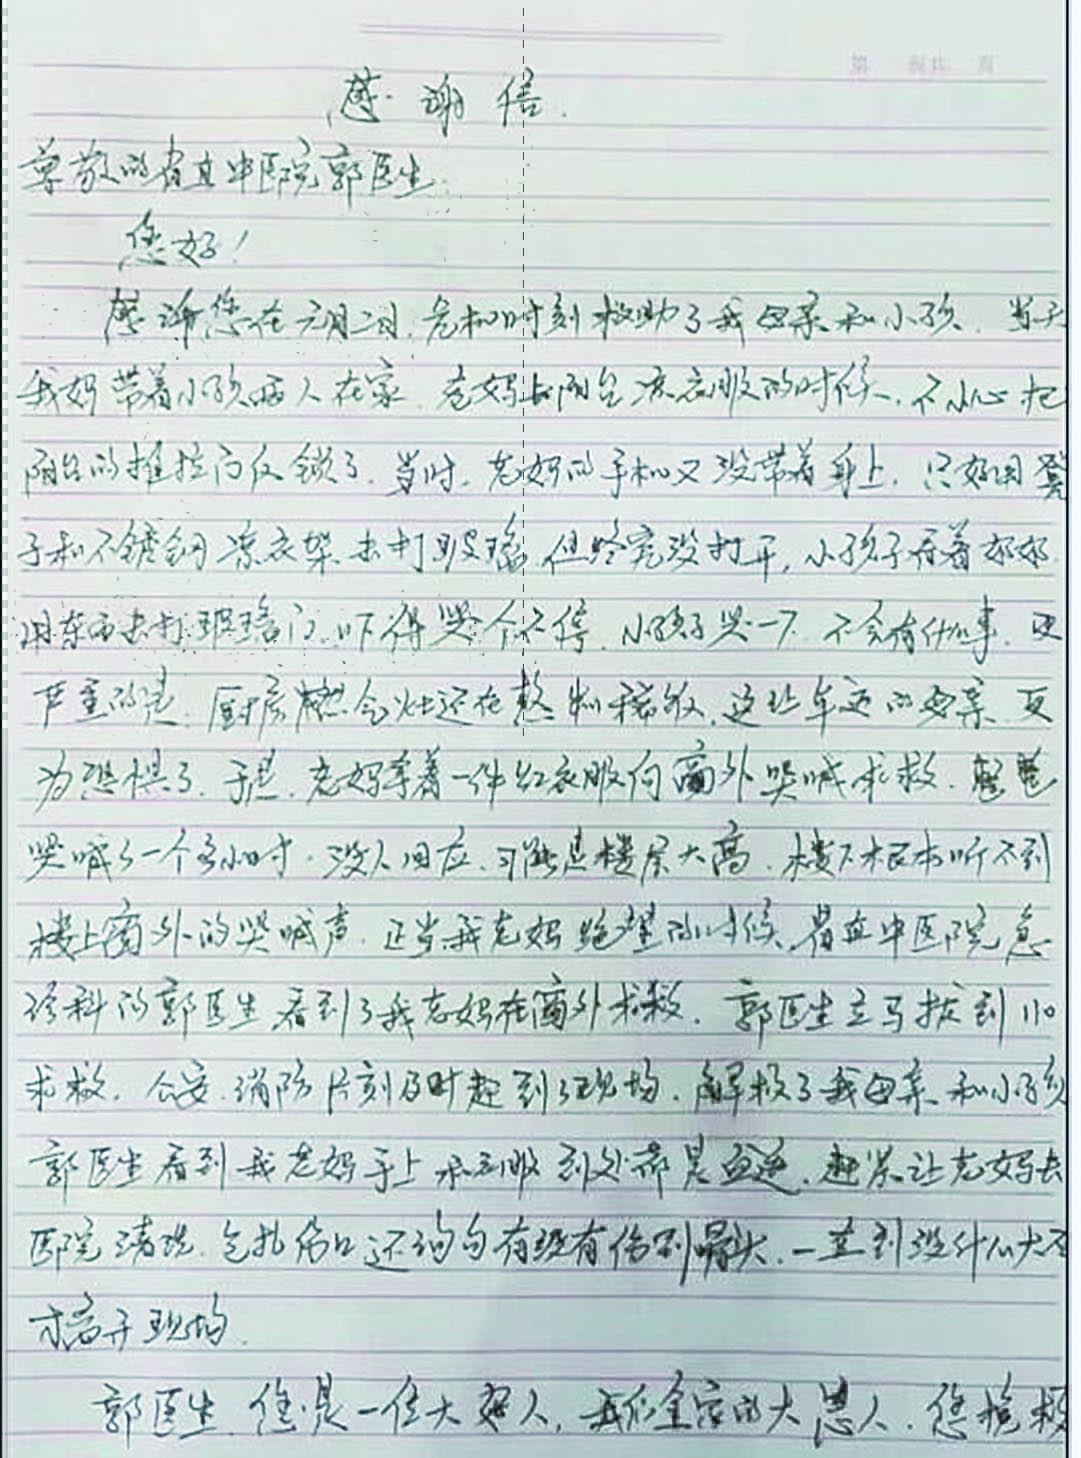 第 页共 页
感谢信.
尊敬的省直中医院郭医生:
您好!
感谢您在元月二日,危机时刻救助了我母亲和小孩.当天
我妈带着小孩两人在家.老妈上阳台凉衣服的时候,不小心把
阳台的推拉门反锁了.当时,老妈的手机又没带着身上,只好用凳
子和不锈钢凉衣架去打玻璃,但终究没打开,小孩子看着奶奶
用东西去打玻璃门.吓得哭个不停,小孩子哭一下不会有什么事,更
严重的是,厨房燃气灶还在熬制稀饭,这让年迈的母亲更
为恐惧了.于是,老妈拿着一件红衣服向窗外哭喊求救.整整
哭喊了一个多小时.没人回应.可能是楼层太高,楼下根本听不到
楼上窗外的哭喊声.正当我老妈绝望的时候,省直中医院急
诊科的郭医生看到了我老妈在窗外求救.郭医生立马拔到110
求救.公安.消防片刻及时赶到了现场.解救了我母亲和小孩
郭医生看到我老妈手上衣服到处都是血迹.赶紧让老妈去
医院清洗.包扎伤口还询问有没有伤到骨头.一直到没什么大不
才离开现场.
郭医生.您是一位大好人,我们全家的大恩人.您抢救